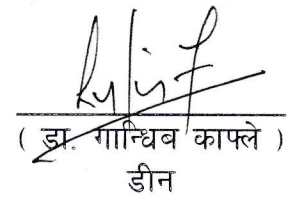 ( डा. गान्धिब काफ्ले )
डीन